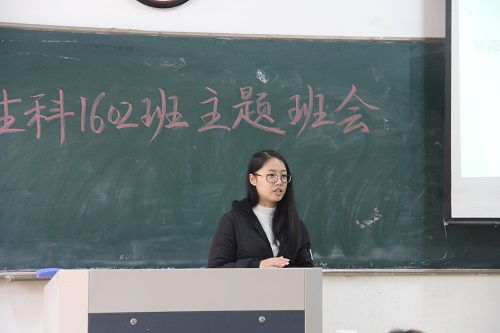 生科1602班主题班会